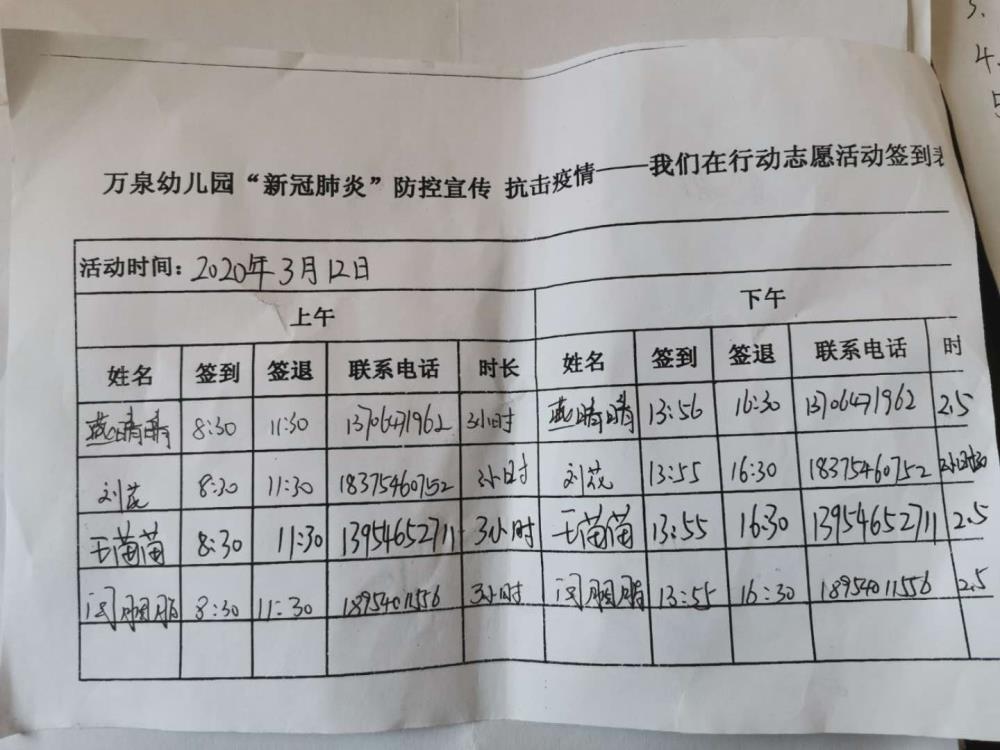 3.
4.
5
万泉幼儿园“新冠肺炎”防控宣传 抗击疫情——我们在行动志愿活动签到表
活动时间：2020年3月12日
上午 下午
姓名 签到 签退 联系电话 时长 姓名 签到 签退 联系电话 时
燕晴晴 8:30 11:30 13706471962 3小时 燕晴晴 13:56 16:30 13706471962 2.5
刘茂 8:30 11:30 18375460752 3小时 刘茂 13:55 16:30 18375460752
王苗苗 8:30 11:30 13954652711 3小时 王苗苗 13:55 16:30 13954652711 2.5
8:30 11:30 18954011556 3小时 13:55 16:30 18954011556 2.5